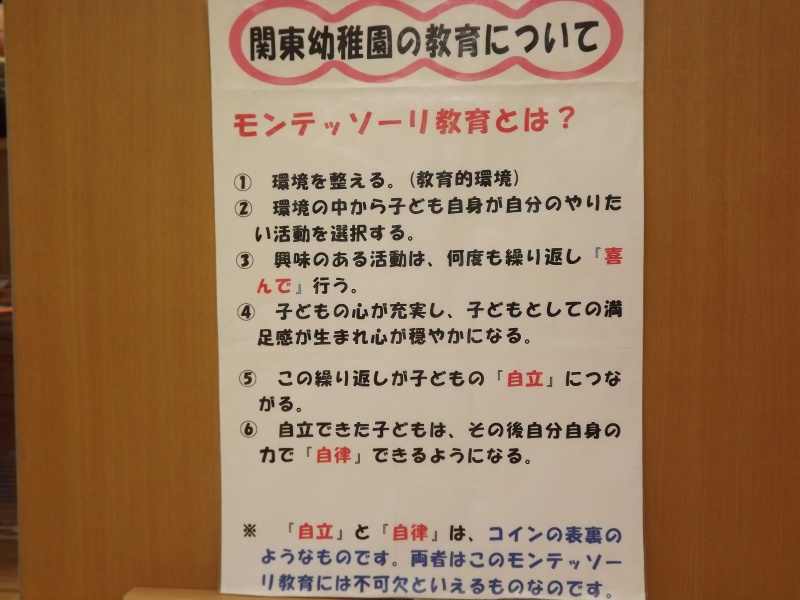 関東幼稚園の教育について
モンテッソーリ教育とは？
① 環境を整える。(教育的環境)
② 環境の中から子ども自身が自分のやりた
い活動を選択する。
③ 興味のある活動は、何度も繰り返し『喜
んで』行う。
④ 子どもの心が充実し、子どもとしての満
足感が生まれ心が穏やかになる。
⑤ この繰り返しが子どもの『自立』につな
がる。
⑥ 自立できた子どもは、その後自分自身の
力で『自律』できるようになる。
※ 『自立』と『自律』は、コインの表裏の
ようなものです。両者はこのモンテッソー
リ教育には不可欠といえるものなのです。